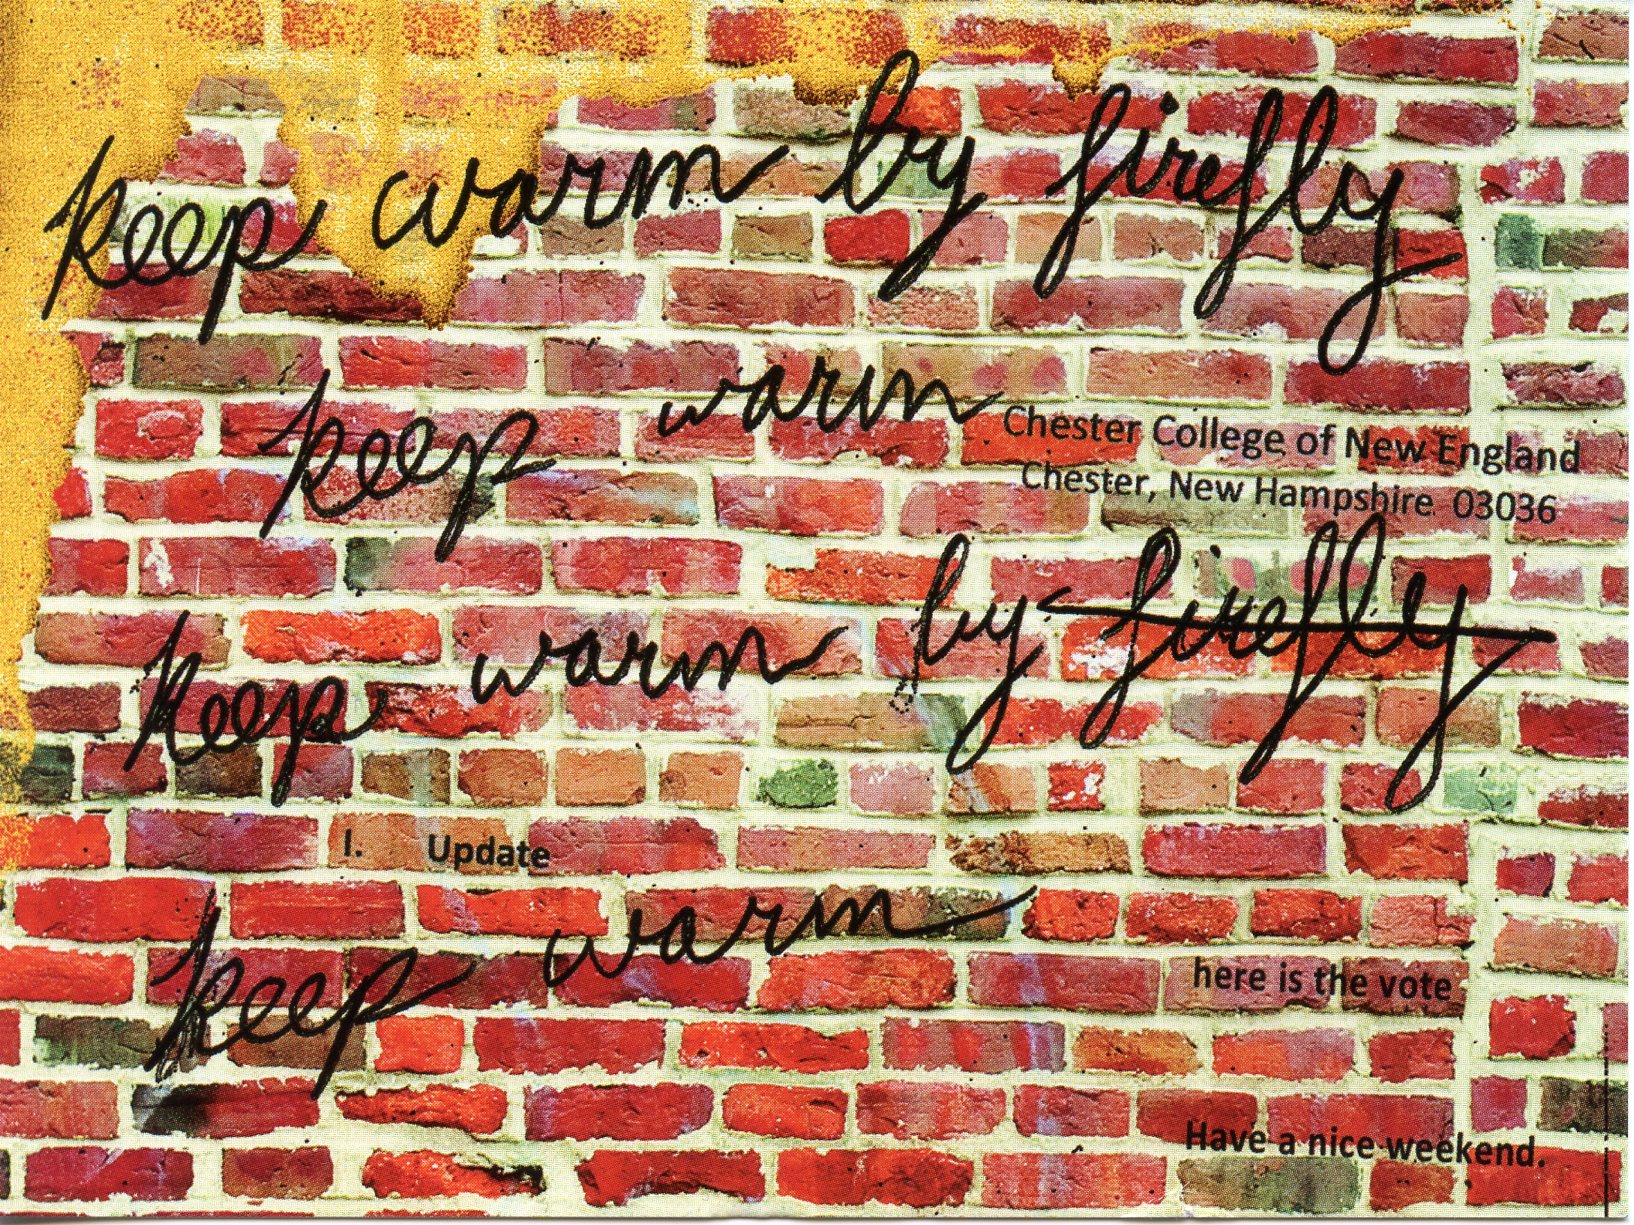 keep warm by firefly
keep warm
Chester College of New England
Chester, New Hampshire 03036
keep warm by firefly
I. Update
keep warm
here is the vote
Have a nice weekend.